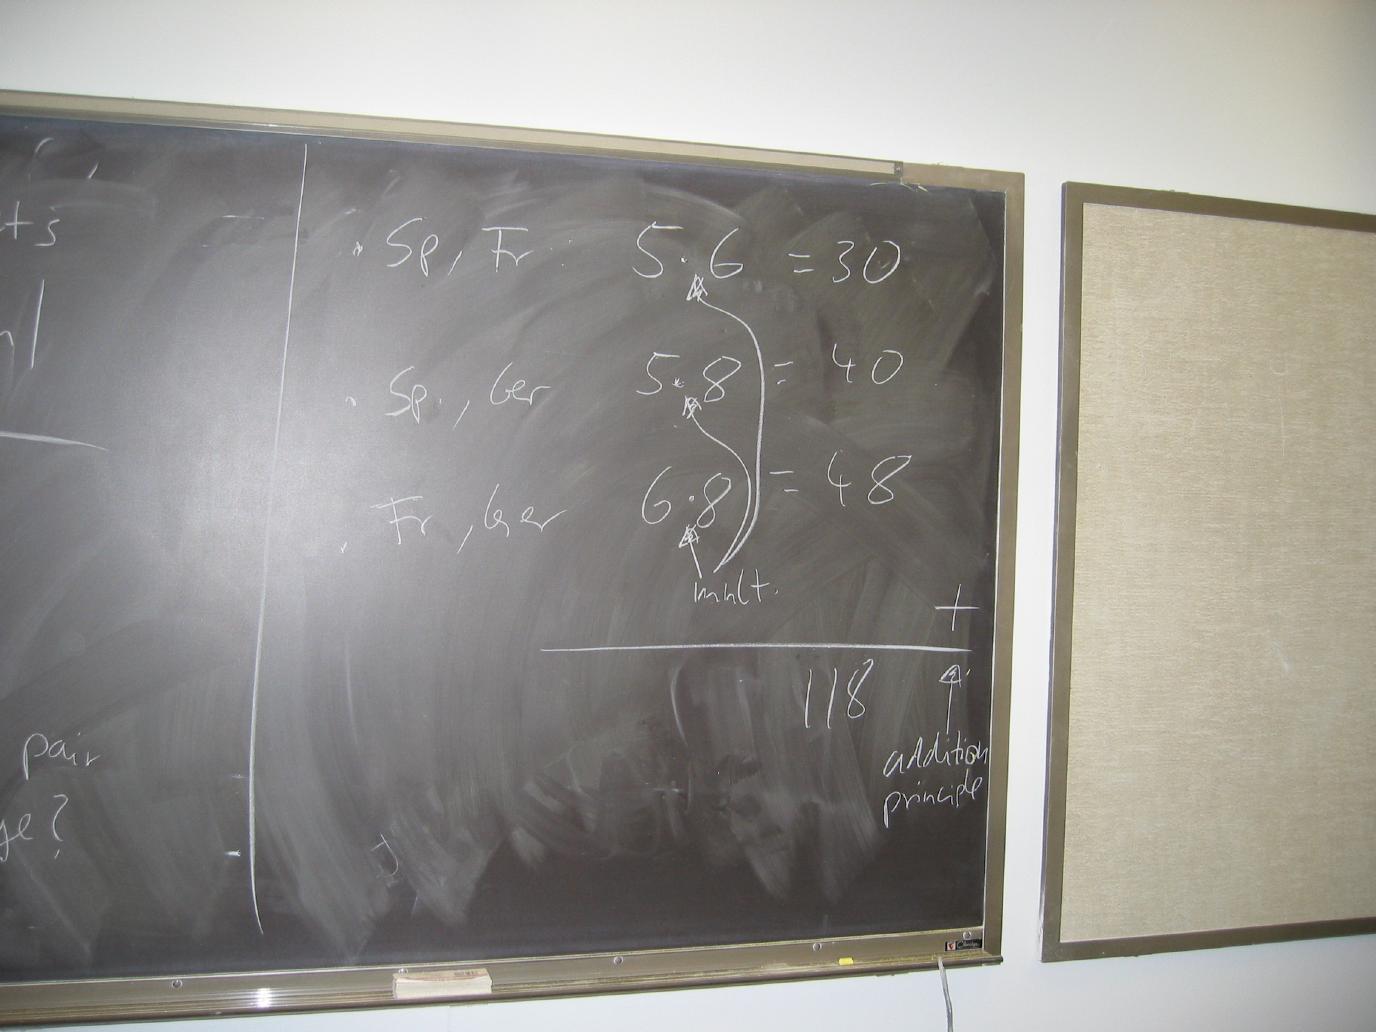 ts
pair
ge?
· Sp, Fr : 5·6 = 30
· Sp., Ger 5·8 = 40
· Fr, Ger 6·8 = 48
mult.
+
118
addition
principle